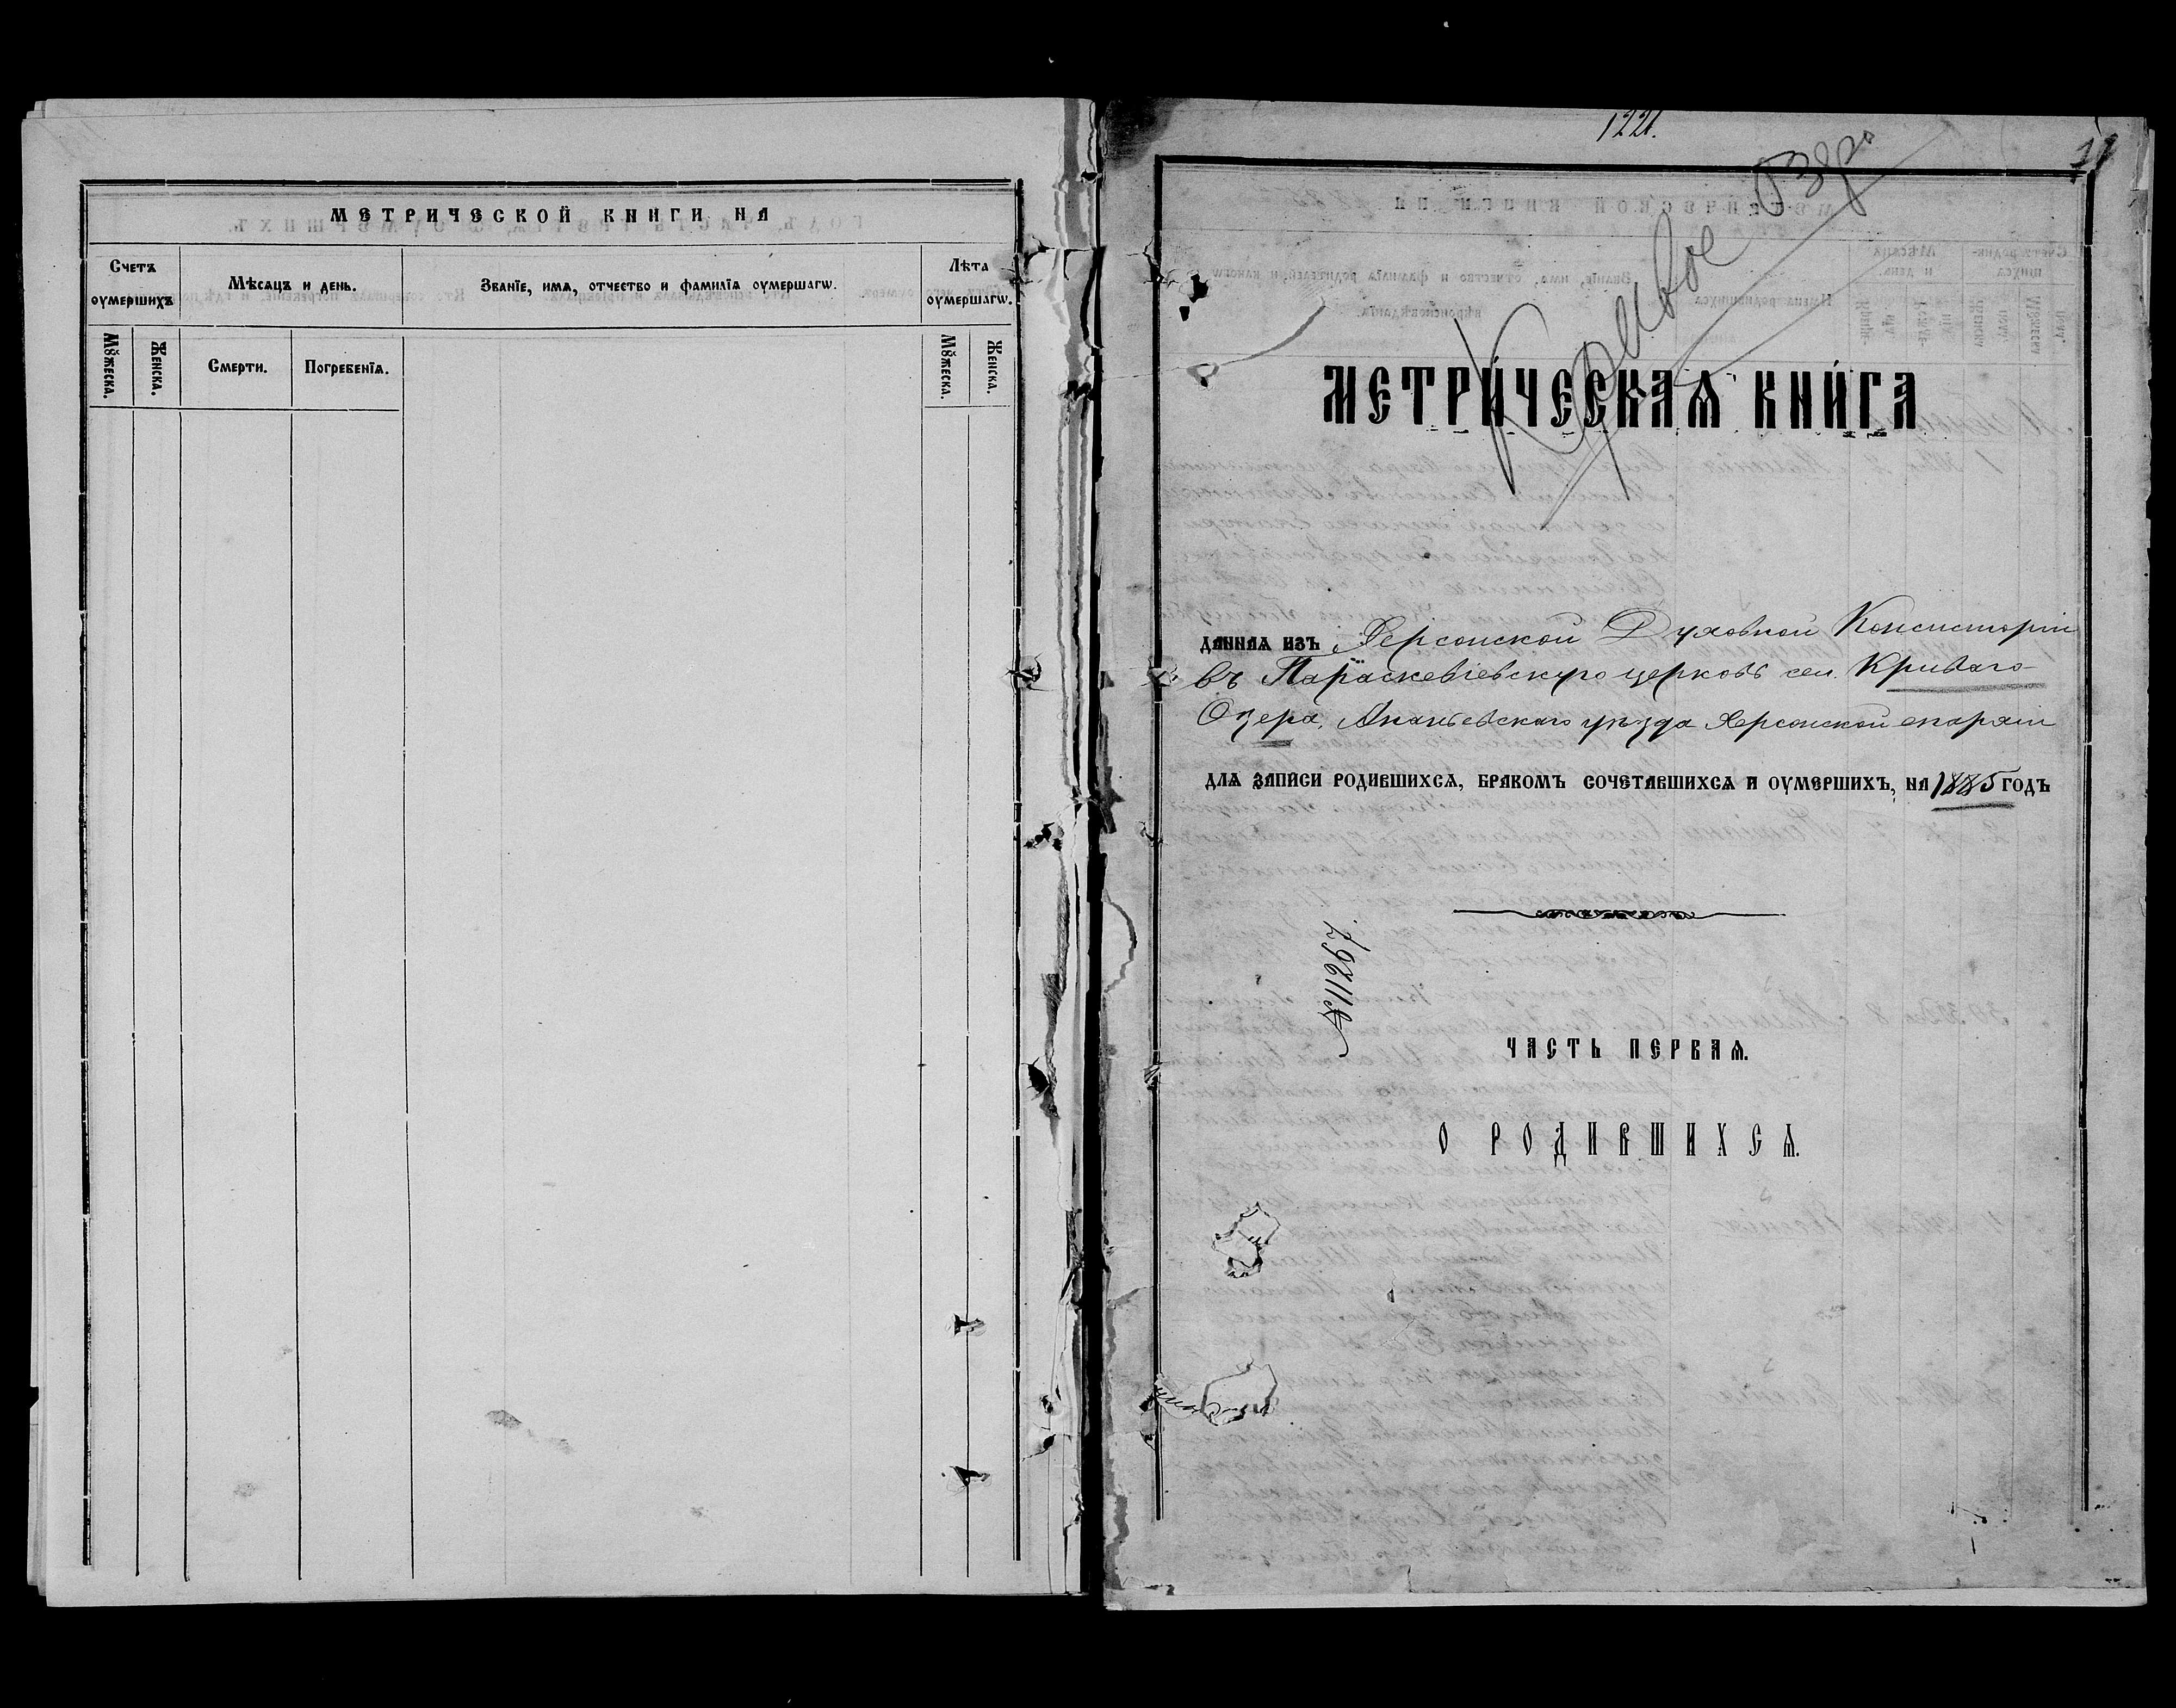 МЕТРИЧЕСКОЙ КНИГИ НА
Счетъ оумершихъ
Мѣсяцъ и день.
Званїе, имѧ, отчество и фамилїѧ оумершагѡ.
Лѣта оумершагѡ.
Мꙋжеска.
Женска.
Смерти.
Погребенїѧ.
Мꙋжеска.
Женска.
1221.
Кривое Озеро
МЕТРИ́ЧЕСКАѦ КНИ́ГА
даннаѧ изъ Херсонской Духовной Консисторіи
въ Параскевіевскую церковь сел. Криваго
Озера, Ананьевскаго уѣзда Херсонской епархіи
длѧ записи родившихсѧ, бракомъ сочетавшихсѧ и оумершихъ, на 1885 годъ
ЧАСТЬ ПЕРВАѦ.
О РОДИВШИХСѦ.